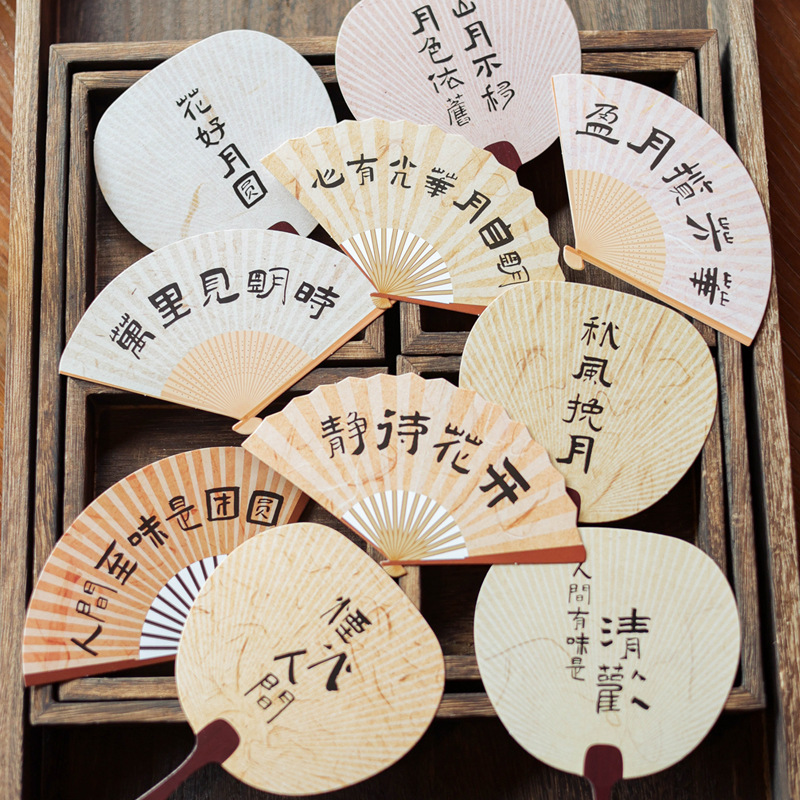 花好月圆
山月不移
月色依舊
盈月攢芳華
心有光華月自明
萬里見明時
秋風挽月
静待花开
人間至味是团圆
煙火
人間
人間有味是
清歡